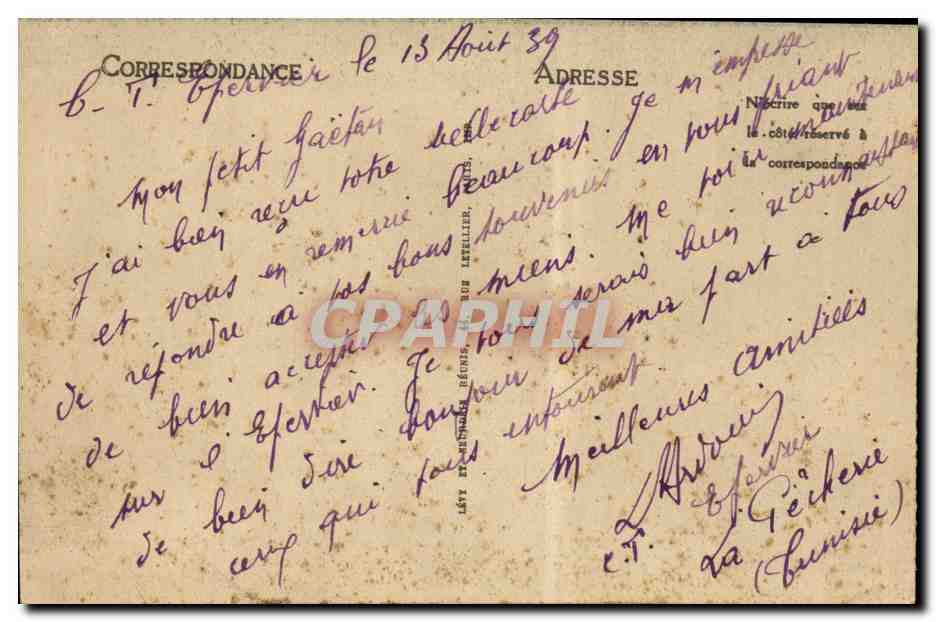 CORRESPONDANCE
ADRESSE
N'écrire que sur
le côté réservé à
la correspondance
C. T. Epervier le 13 Août 39
Mon petit Gaëtan
J'ai bien reçu votre belle carte
et vous en remercie beaucoup. Je m'empresse
de répondre à vos bons souvenirs en vous priant
de bien accepter les miens. Me voir maintenant
sur l'Epervier. Je vous serais bien reconnaissant
de bien dire bonjour de ma part a tous
ceux qui vous entourent.
Meilleures amitiés
Epervier
C.T.
La Pêcherie
(Tunisie)
LÉVY ET NEURDEIN RÉUNIS, 44, RUE LETELLIER, PARIS, IMP.
CPAPHIL